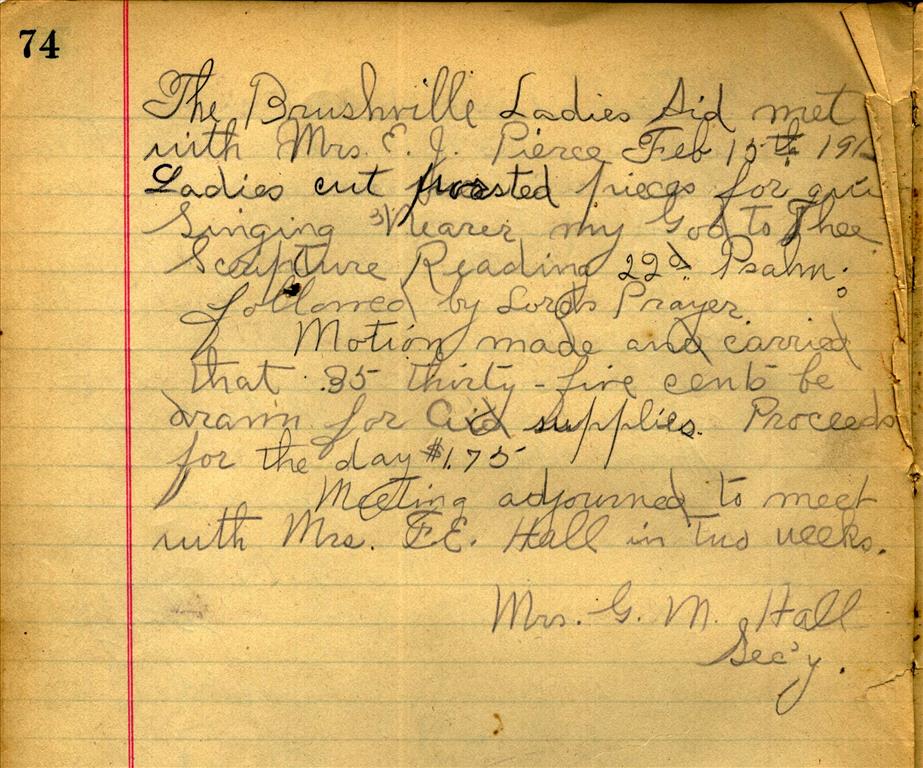 74
The Brushville Ladies Aid met
with Mrs. E. J. Pierce Feb 15th 191
Ladies cut worsted pieces for qui
Singing Nearer my God to Thee
Scripture Reading 22d Psalm.
followed by Lords Prayer.
Motion made and carried
that .35 thirty-five cents be
drawn for Aid supplies. Proceeds
for the day $1.75
Meeting adjourned to meet
with Mrs. F.E. Hall in two weeks.
Mrs. G. M. Hall
Sec'y.